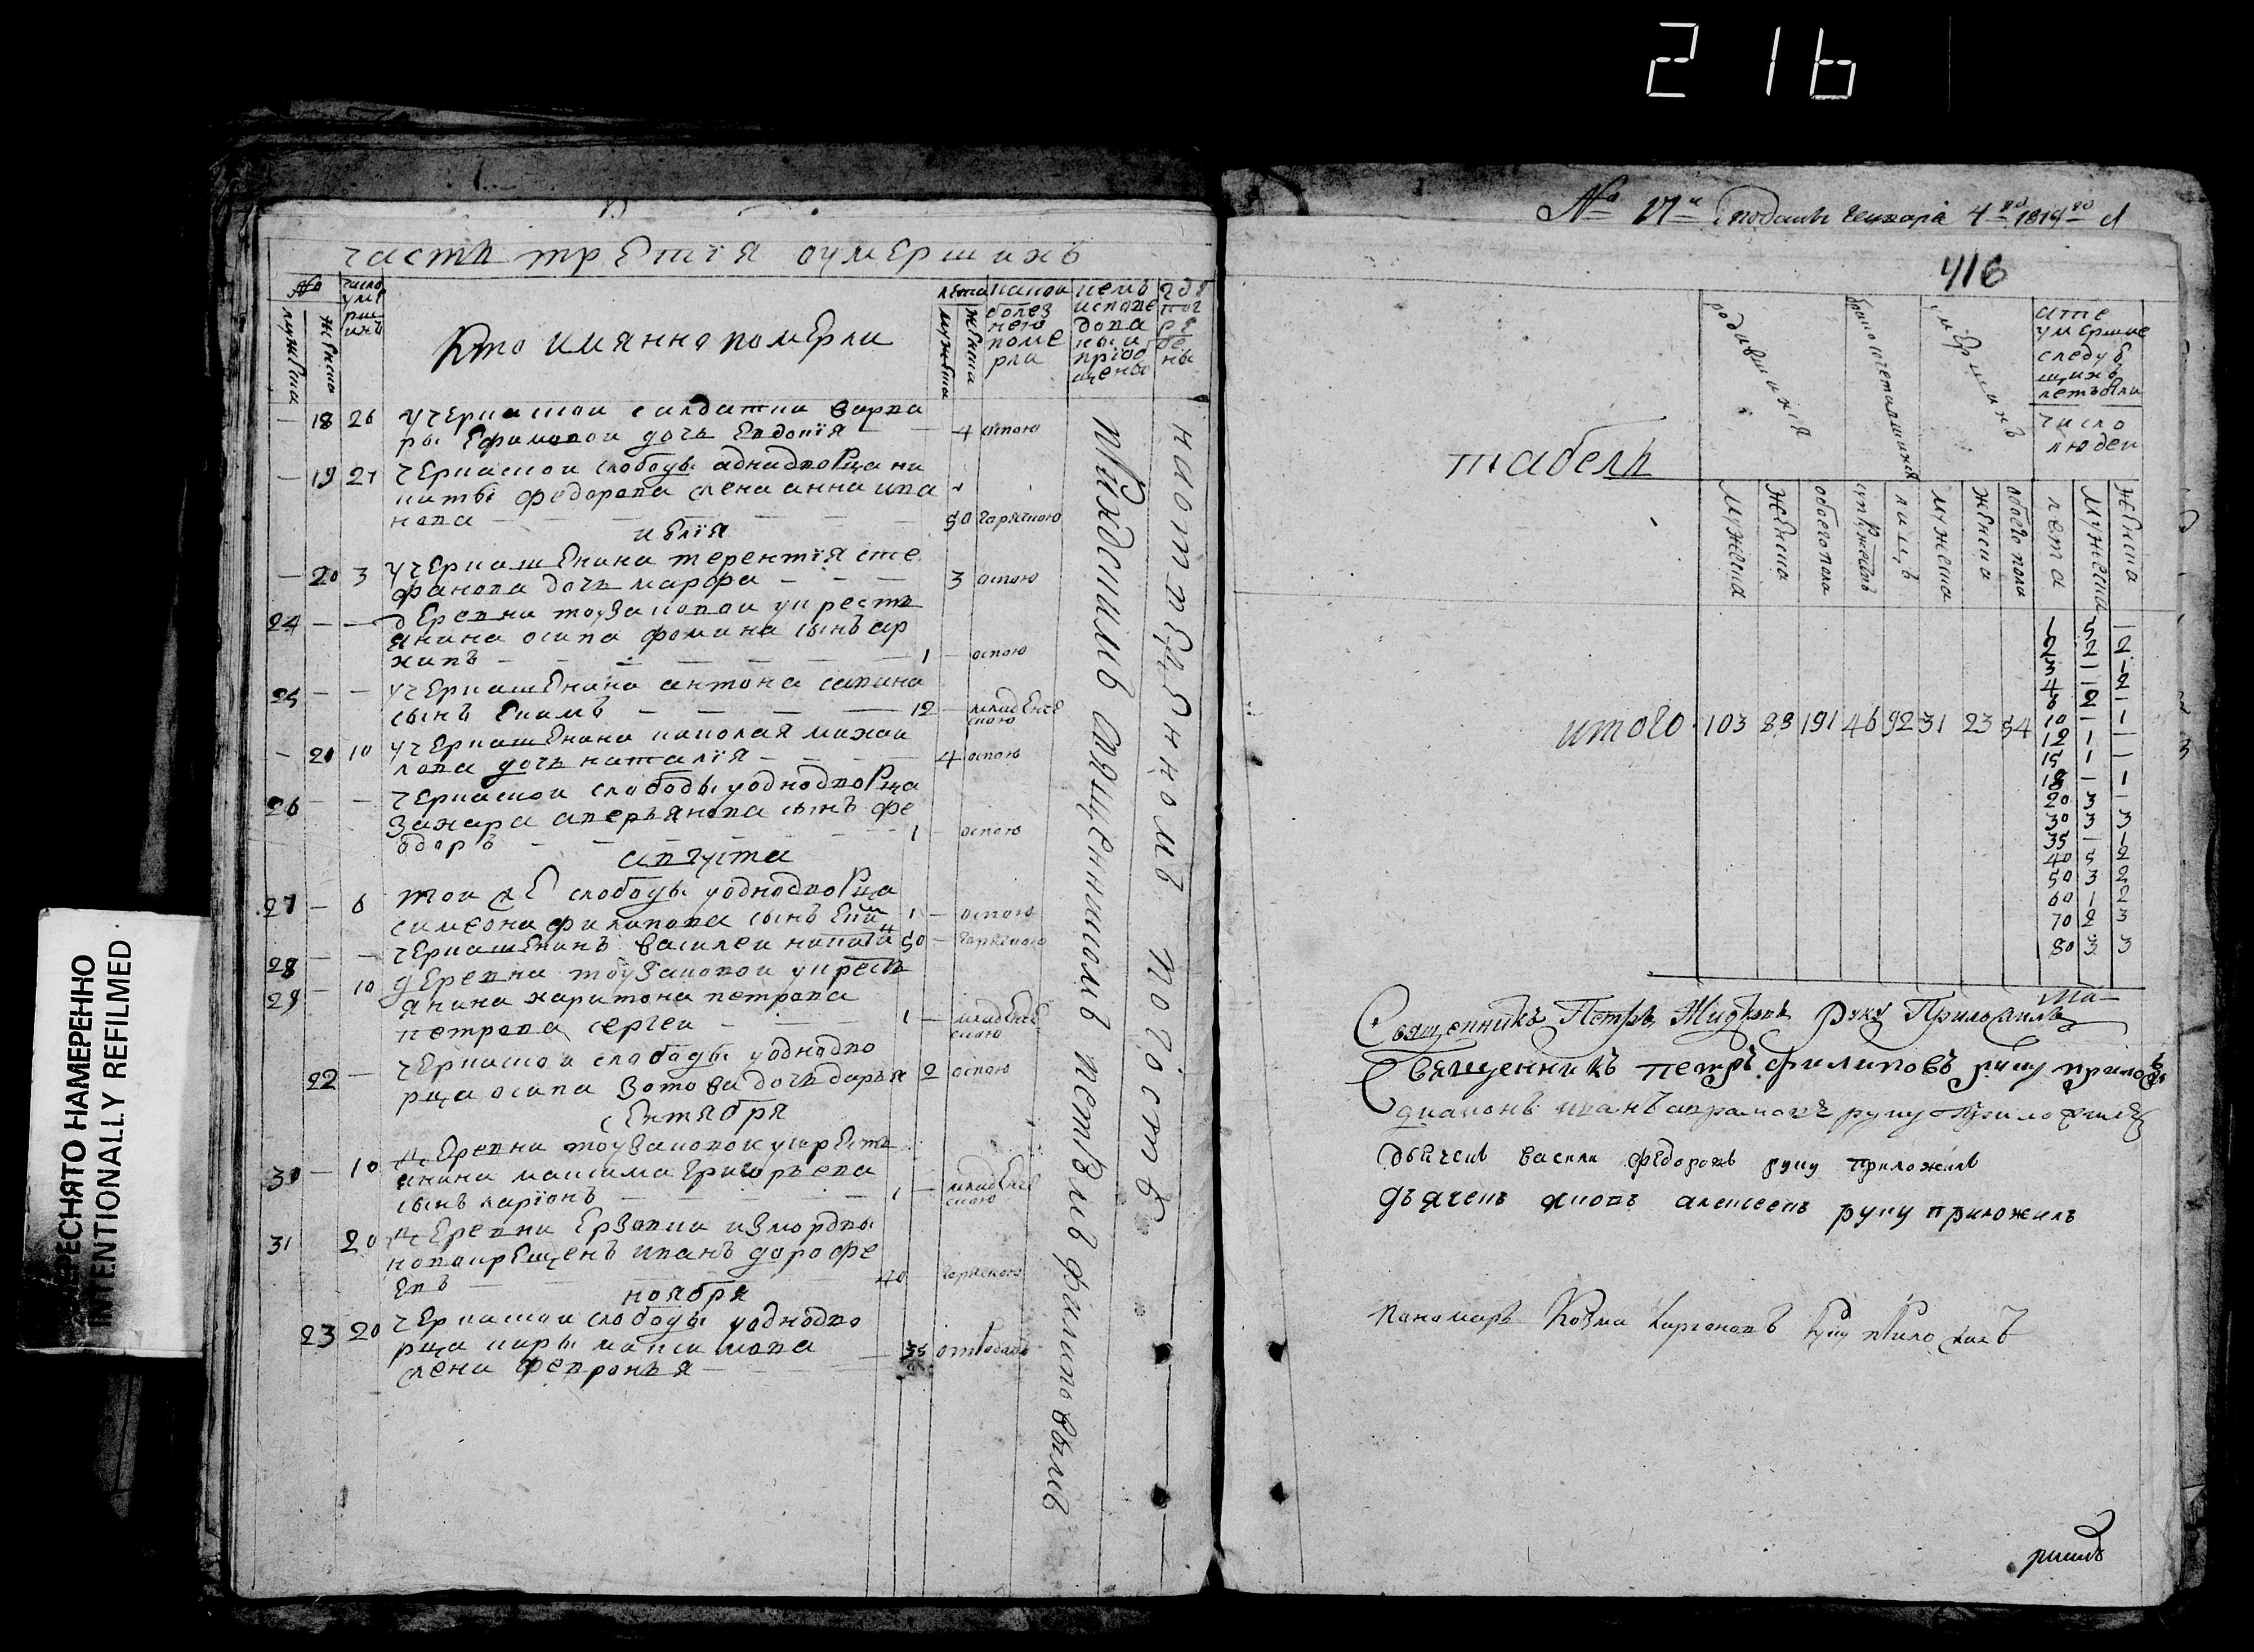 216
ПЕРЕСНЯТО НАМЕРЕННО
INTENTIONALLY REFILMED
часть третїя оумершихъ
№
число умершихъ
мужеска
женска
Кто имянно померли
лета
мужеска
женска
какою болезнею померли
кемъ исповедованы и прїобщены
где погребены
— 18 26 у черкаской салдатки варва
ры Ефимовой дочь Евдокїя — 4 оспою
— 19 27 черкаской слободы аднадворца ни
киты федорова жена анна ива
нова — 80 горячкою
июлїя
— 20 3 у черкашенина терентїя сте
фанова дочь марфа — 3 оспою
24 — — деревни тоузаковой у крестъ
янина осипа фомина сынъ ар
хипъ — 1 — оспою
25 — — у черкашенина антона савина
сынъ Екимъ — 12 — младенче
скою
— 21 10 у черкашенина николая михаи
лова дочь наталїя — 4 оспою
26 — — черкаской слободы у однодворца
захара аверьянова сынъ фе
одоръ — 1 — оспою
августа
27 — 6 той же слободы у однодворца
симеона филипова сынъ 1 — оспою
28 — — черкашенинъ василей 50 — горячкою
29 — 10 деревни тоузаковой у крестъ
янина харитона петрова
петрова сергей — 1 — младенче
скою
22 — черкаской слободы у однодво
рца осипа зотова дочь дарья 2 оспою
сентября
30 — 10 деревни тоузаковой у крестъ
янина максима григорьева
сынъ ларїонъ — 1 — младенче
скою
31 20 деревни Ерзовки из мордвы
новокрещенъ иванъ дорофе
евъ — 40 горячкою
ноября
23 20 черкаской слободы у однодво
рца киры максимова
жена февронья — 35
приходскимъ священникомъ петромъ филиповымъ
на отведенномъ погосте
№ подать генваря 4 го 1814 го
416
табель
родившихся
бракосочетавшихся
умершихъ
а те умершие следующихъ летъ были
число людей
мужеска
женска
обоего пола
супружествъ
лицъ
мужеска
женска
обоего пола
лета
мужеска
женска
1 5 —
2 2 2
3 — 1
4 — 2
6 2 —
10 — 1
12 1 —
15 1 —
18 — 1
20 3 —
30 3 3
35 — 1
40 5 2
50 3 2
60 1 2
70 2 3
80 3 3
итого 103 88 191 46 92 31 23 54
Священникъ Петръ Жидковъ Руку Приложилъ
Священникъ петръ филиповъ руку прило
диаконъ иванъ аврамовъ руку приложилъ
дьячекъ василй федоровъ руку приложилъ
дьячекъ яковъ алексеевъ руку приложилъ
панамарь Козма руку приложилъ